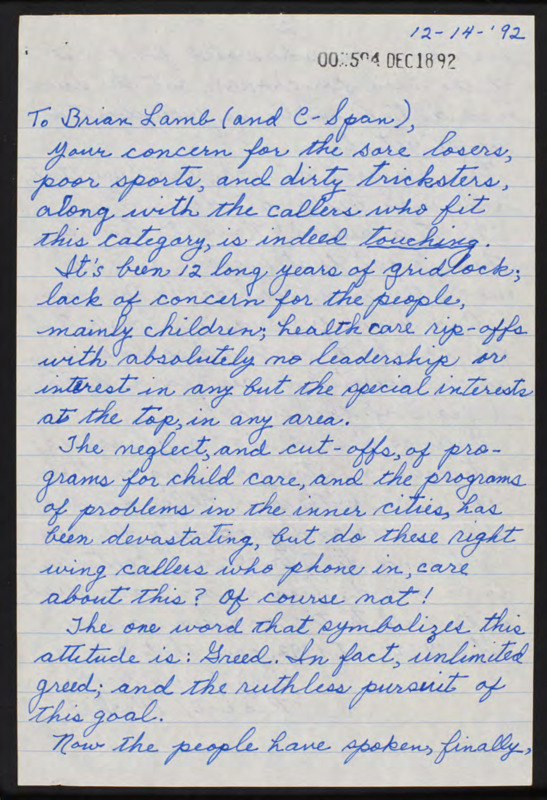 12-14-'92
00 594 DEC18 92
To Brian Lamb (and C-Span),
Your concern for the sore losers,
poor sports, and dirty tricksters,
along with the callers who fit
this category, is indeed touching.
It's been 12 long years of gridlock;
lack of concern for the people,
mainly children; health care rip-offs
with absolutely no leadership or
interest in any but the special interests
at the top, in any area.
The neglect, and cut-offs, of pro-
grams for child care, and the programs
of problems in the inner cities, has
been devastating, but do these right
wing callers who phone in, care
about this? Of course not!
The one word that symbolizes this
attitude is: Greed. In fact, unlimited
greed; and the ruthless pursuit of
this goal.
Now the people have spoken, finally,